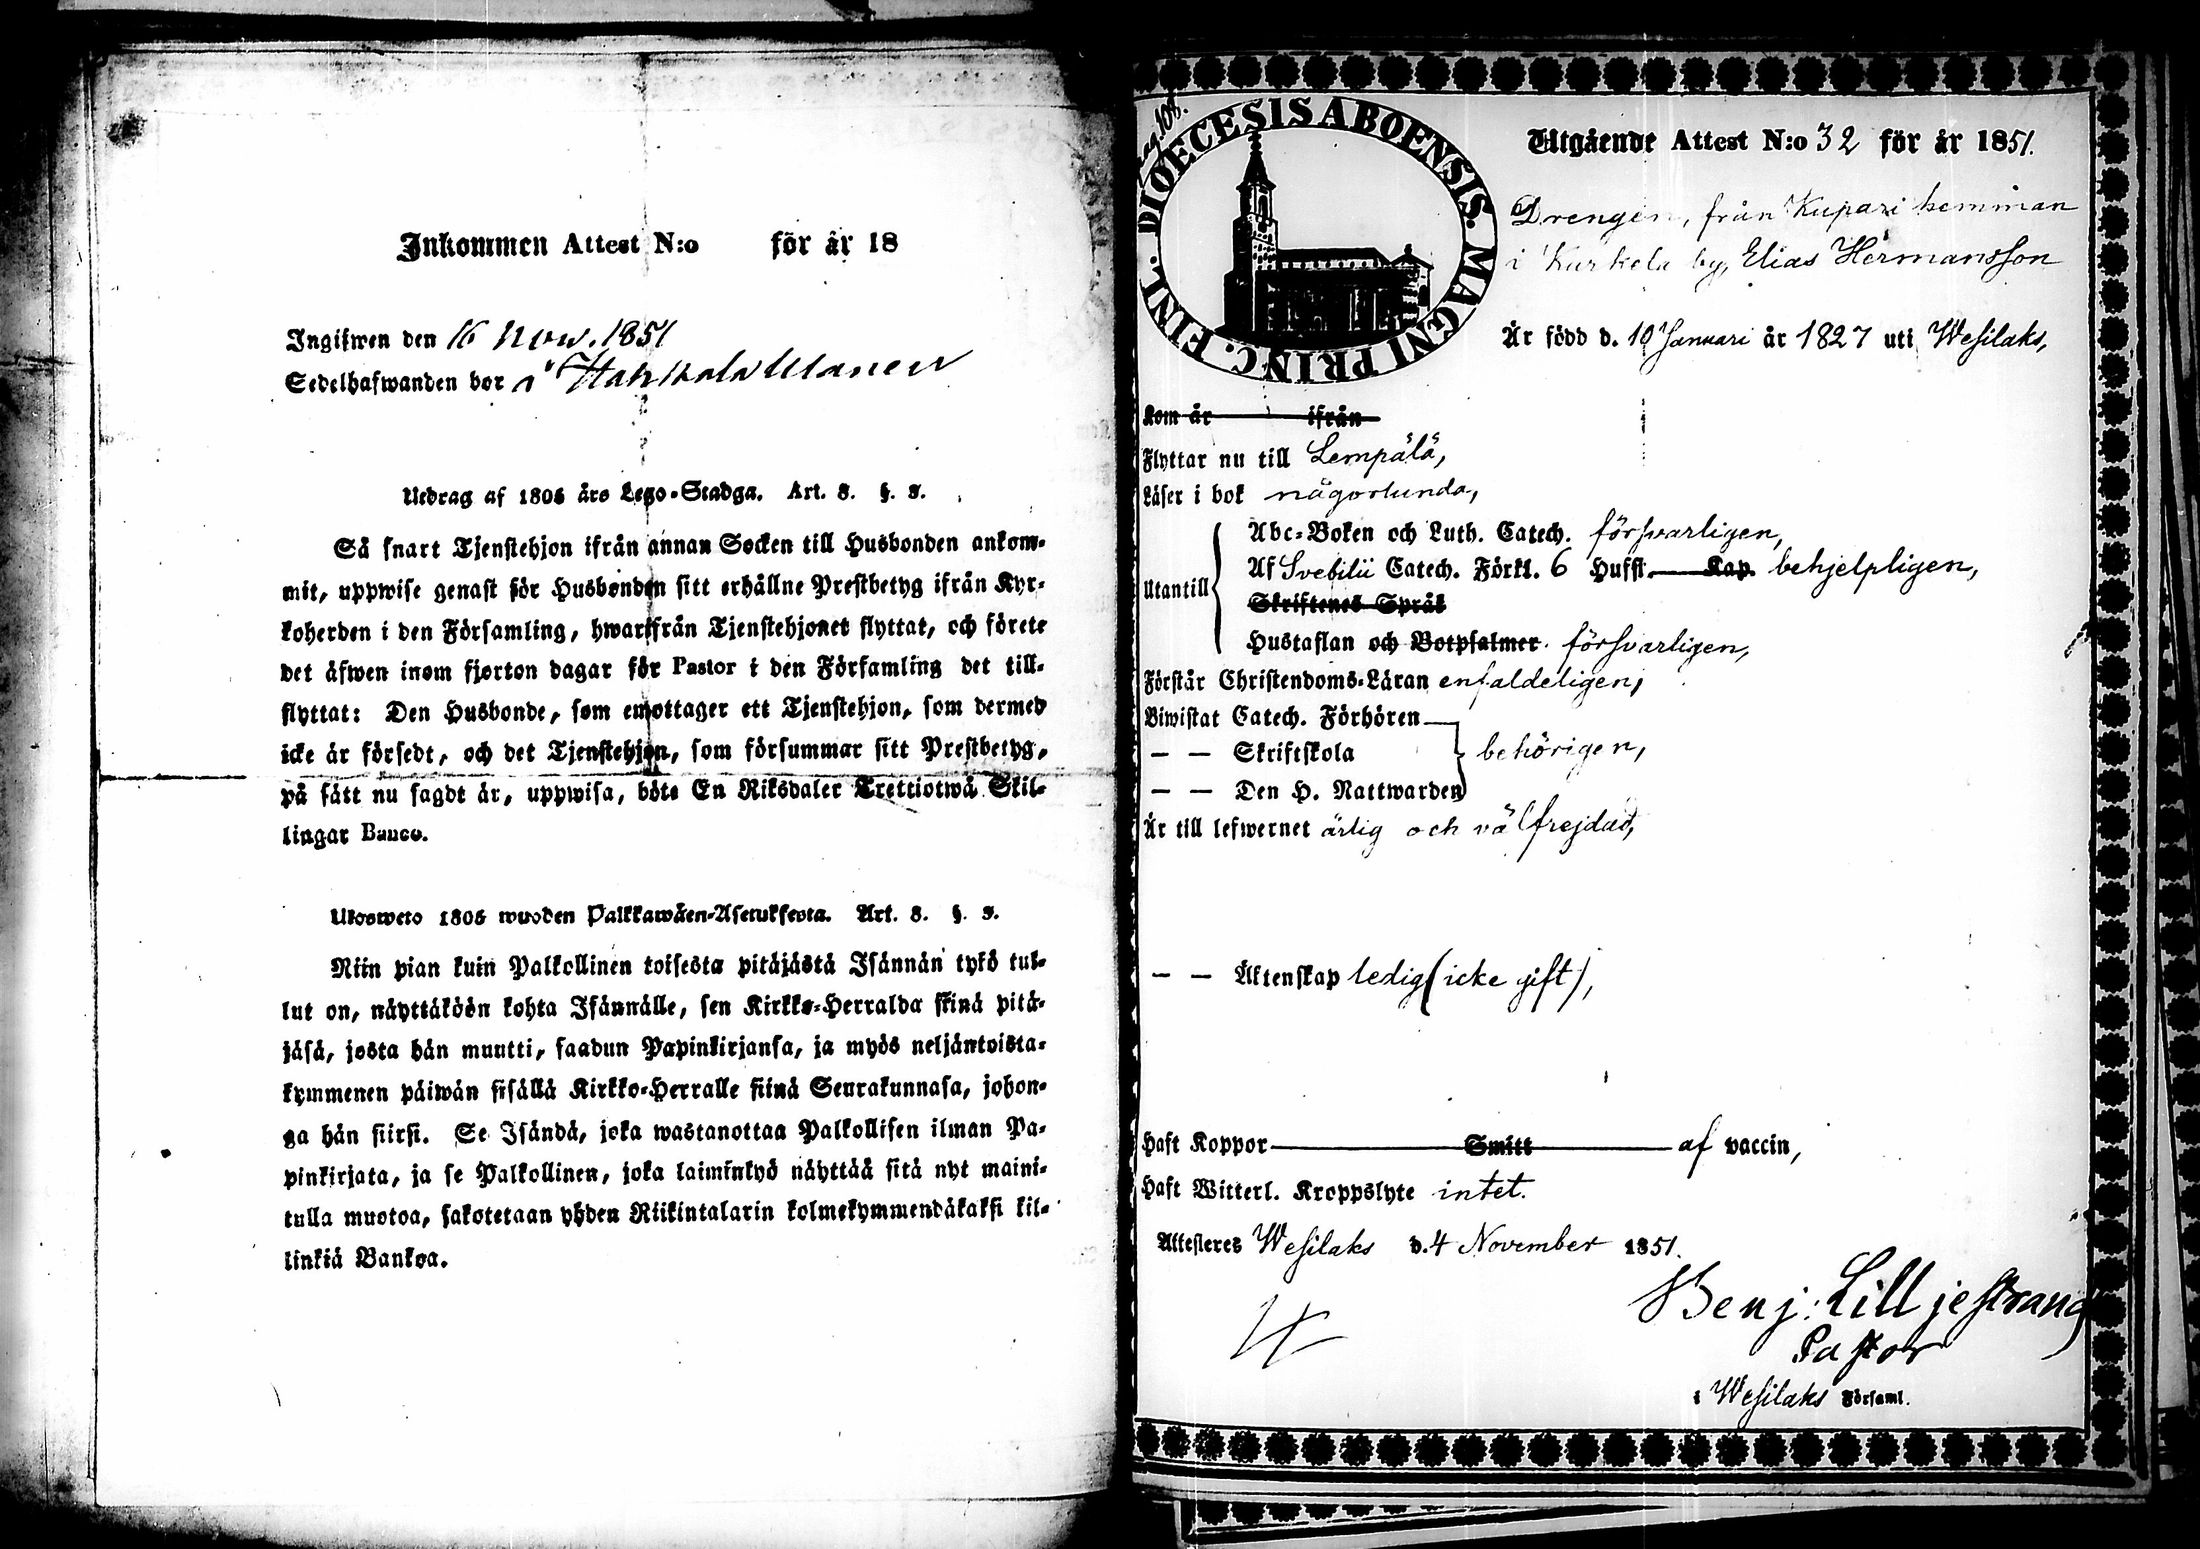 Inkommen Attest N:o för år 18
Ingifwen den 16 Nov. 1851
Sedelhafwanden bor i
Utdrag af 1805 års Lego-Stadga. Art. 8. §. 3.
Så snart Tjenstehjon ifrån annan Socken till Husbonden ankom-
mit, uppwise genast för Husbonden sitt erhållne Prestbetyg ifrån Kyr-
koherden i den Församling, hwarifrån Tjenstehjonet flyttat, och förete
det äfwen inom fjorton dagar för Pastor i den Församling det till-
flyttat: Den Husbonde, som emottager ett Tjenstehjon, som dermed
icke är försedt, och det Tjenstehjon, som försummar sitt Prestbetyg,
på sätt nu sagdt är, uppwisa, böte En Riksdaler Trettiotwå Skil-
lingar Banco.
Ulosweto 1805 wuoden Palkkawäen-Asetuksesta. Art. 8. §. 3.
Niin pian kuin Palkollinen toisesta pitäjästä Isännän tykö tul-
lut on, näyttäköön kohta Isännälle, sen Kirkko-Herralda siinä pitä-
jäsä, josta hän muutti, saadun Papinkirjansa, ja myös neljäntoista-
kymmenen päiwän sisällä Kirkko-Herralle siinä Seurakunnasa, johon-
ga hän siirsi. Se Isändä, joka wastanottaa Palkollisen ilman Pa-
pinkirjata, ja se Palkollinen, joka laiminlyö näyttää sitä nyt maini-
tulla muotoa, sakotetaan yhden Riikintalarin kolmekymmendäkaksi kil-
linkiä Bankoa.
pag. 108.
DIOECESIS ABOENSIS. MAGNI PRINC. FINL.
Utgående Attest N:o 32 för år 1851.
Drengen, från Kupari hemman
i Kurkela by, Elias Hermansson
Är född d. 10 Januari år 1827 uti Wesilaks,
Kom år ifrån
Flyttar nu till Lempälä,
Läser i bok någorlunda,
Utantill
Abc-Boken och Luth. Catech. försvarligen,
Af Svebilii Catech. Förkl. 6 Hufst. Kap. behjelpligen,
Skriftenes Språk
Hustaflan och Botpsalmer. försvarligen,
Förstår Christendoms-Läran enfaldeligen,
Biwistat Catech. Förhören
— — Skriftskola behörigen,
— — Den H. Nattwarden
Är till lefwernet ärlig och välfrejdad,
— — Äktenskap ledig (icke gift),
Haft Koppor Smitt af vaccin,
Haft Witterl. Kroppslyte intet.
Attesteres Wesilaks d. 4 November 1851.
Benj: Lilljestrand
Pastor
i Wesilaks Församl.